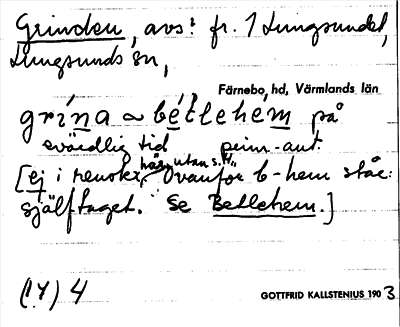 Grinden, avs. fr. 1 Lungsundet,
Lungsunds sn,
Färnebo hd, Värmlands län
grína ~ bétlehém på
tid penn-ant.
[ej i renskr. här utan s. 4, ovanför b-hem står:
självtaget. Se Betlehem.]
(17) 4
GOTTFRID KALLSTENIUS 1903